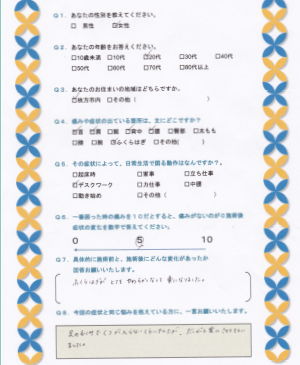 Q1. あなたの性別を教えてください。
□ 男性 ☑女性
Q2. あなたの年齢をお答えください。
□10歳未満 □10代 ☑20代 □30代 □40代
□50代 □60代 □70代 □80代以上
Q3. あなたのお住まいの地域はどちらですか。
☑枚方市内 □その他( )
Q4. 痛みや症状の出ている箇所は、主にどこですか?
□首 □肩 □腕 □背中 ☑腰 □臀部 □太もも
□膝 □腕 ☑ふくらはぎ □その他( )
Q5. その症状によって、日常生活で困る動作はなんですか?。
□起床時 □家事 □立ち仕事
☑デスクワーク □力仕事 □中腰
□動き始め □その他( )
Q6. 一番困った時の痛みを10だとすると、痛みがないのが0 施術後
症状の変化を数字で答えてください。
0 5 10
Q7. 具体的に施術前と、施術後にどんな変化があったか
回答お願いいたします。
ふくらはぎが とても
Q8. 今回の症状と同じ悩みを抱えている方に、一言お願いいたします。